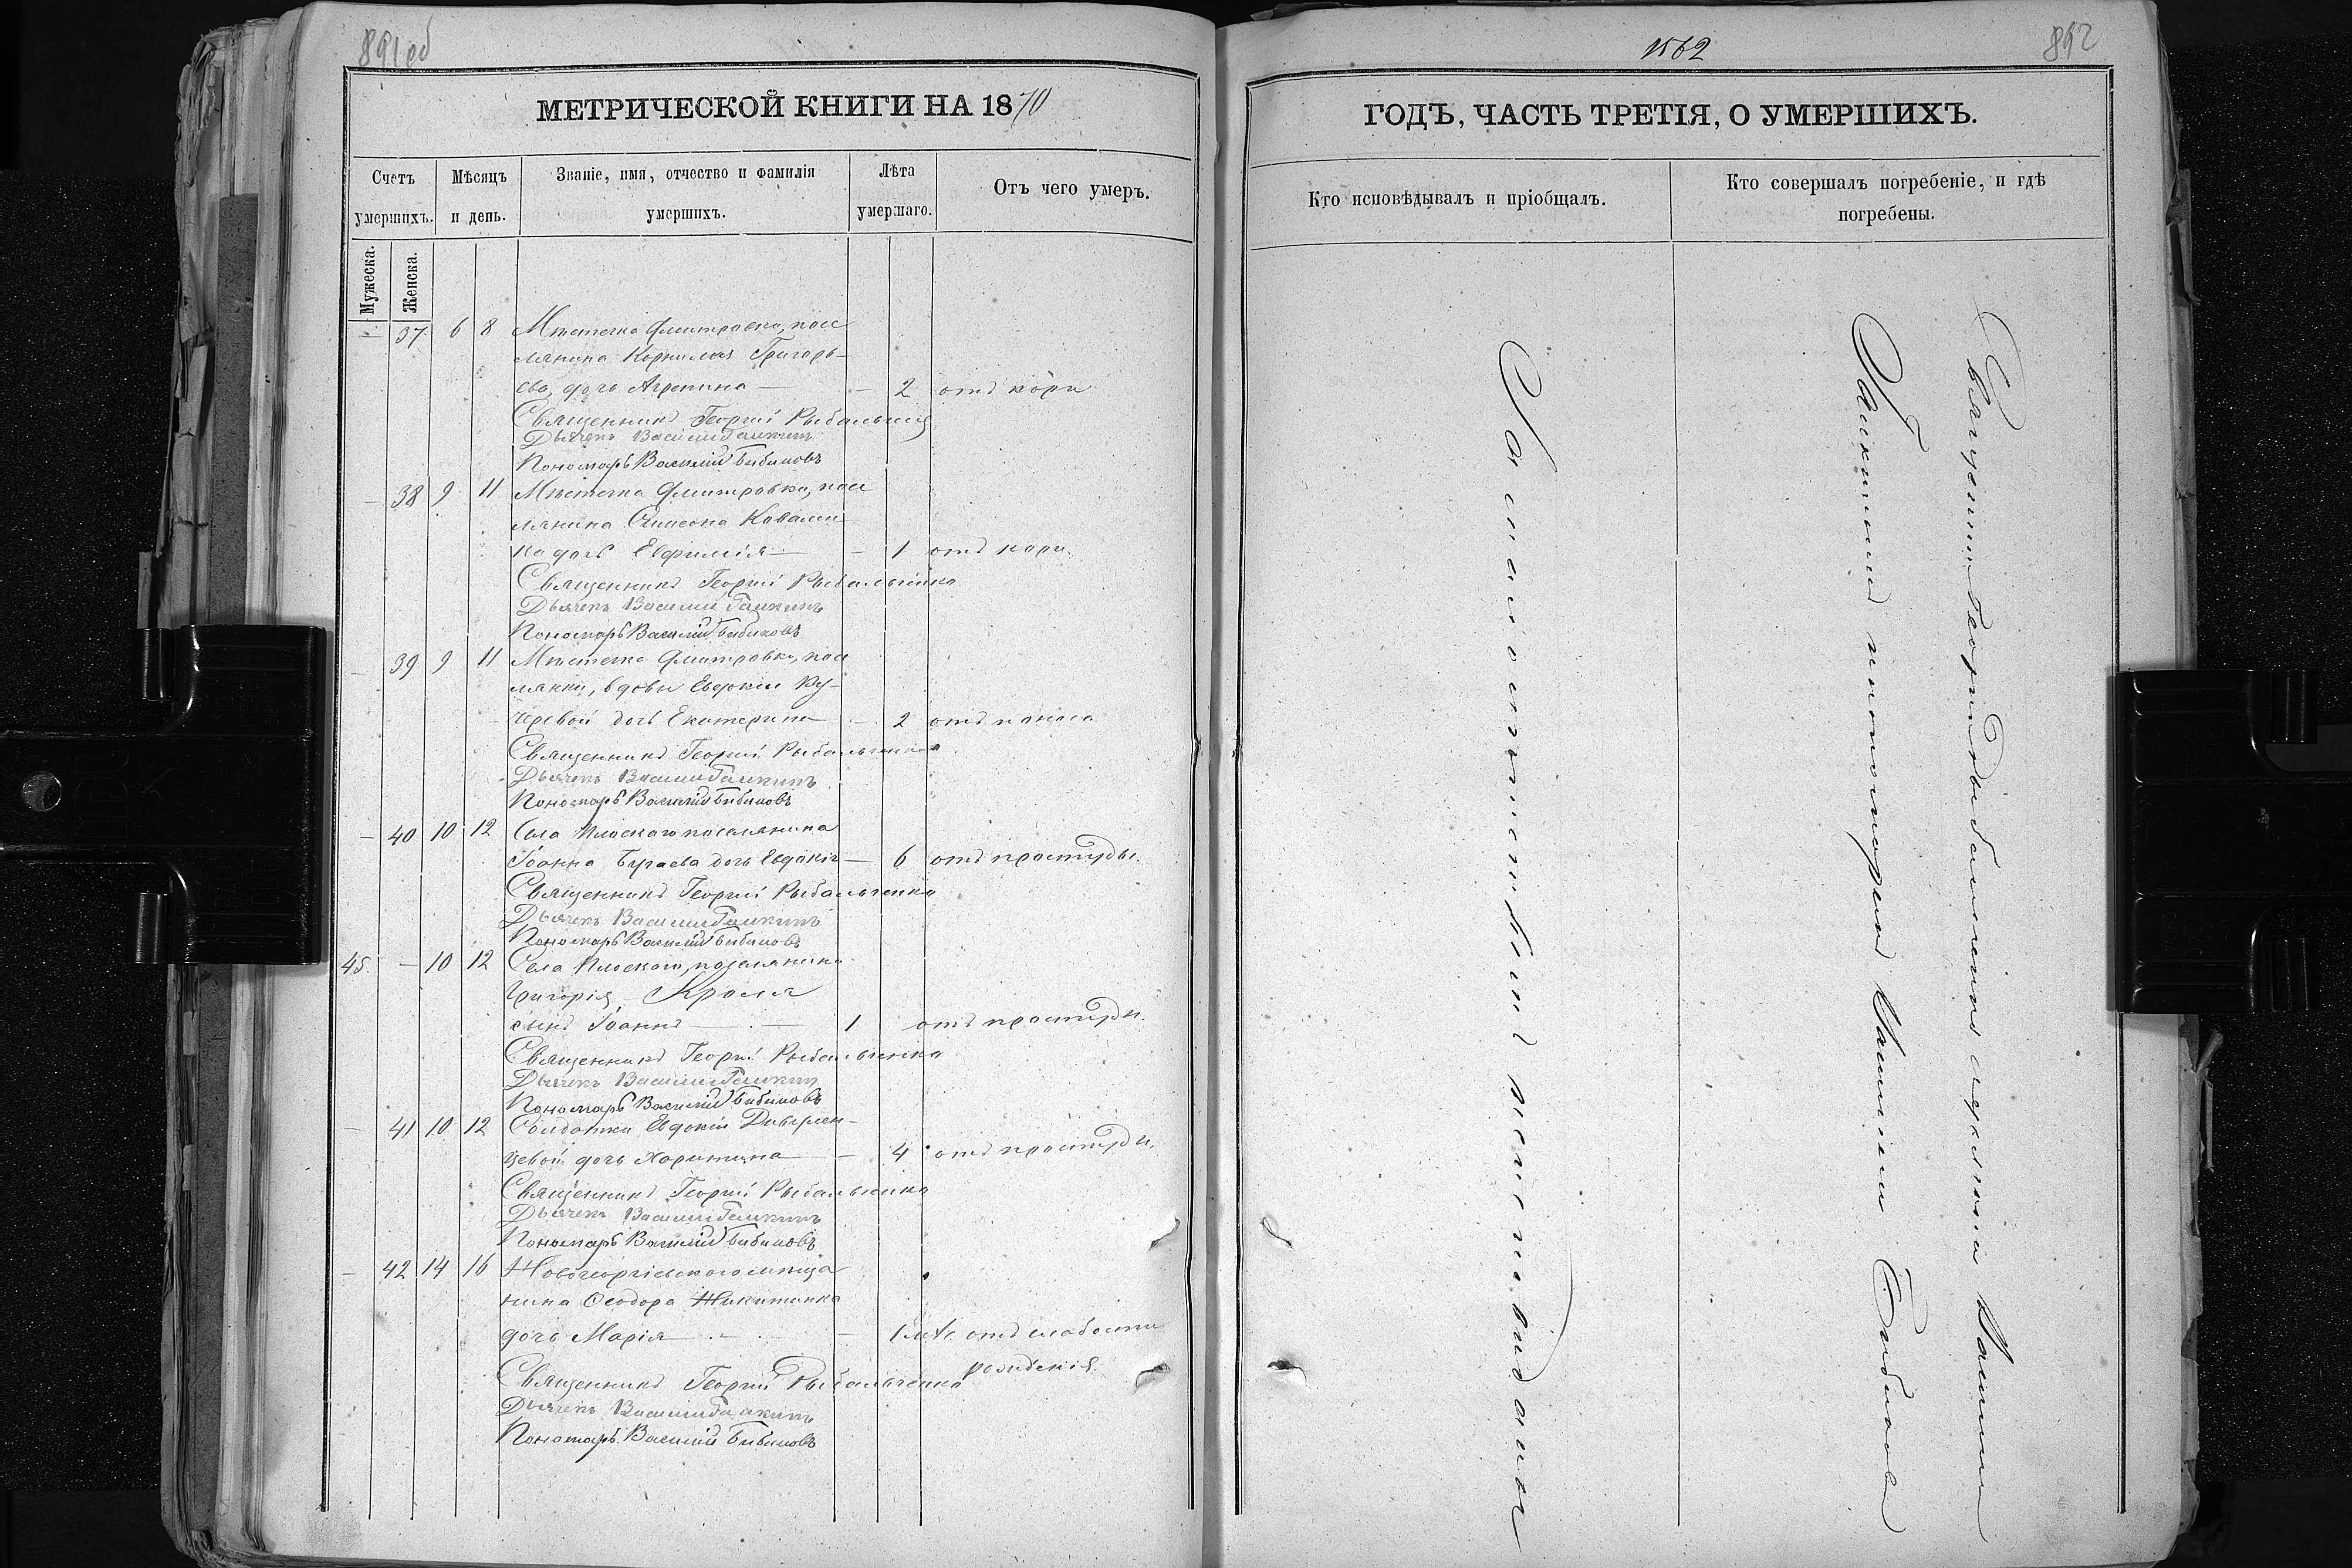 891 об
МЕТРИЧЕСКОЙ КНИГИ НА 1870
Счетъ умершихъ.
Мѣсяцъ и день.
Званіе, имя, отчество и фамилія умершихъ.
Лѣта умершаго.
Отъ чего умеръ.
Мужеска.
Женска.
— 37 6 8 Мѣстечка Дмитровки, посе
лянина Корнилія Григорь-
ева, дочь Агрепина — — 2 отъ кори
Священникъ Георгій Рыбальченко
Дьячекъ Василій Галкинъ
Пономарь Василій Бибиковъ
— 38 9 11 Мѣстечка Дмитровки, посе
лянина Симеона Ковалин
ка дочь Евфимія — — 1 отъ кори.
Священникъ Георгій Рыбальченко
Дьячекъ Василій Галкинъ
Пономарь Василій Бибиковъ
— 39 9 11 Мѣстечка Дмитровки, посе
лянки, вдовы Евдокіи Ку-
черевой дочь Екатерина — 2 отъ поноса
Священникъ Георгій Рыбальченко
Дьячекъ Василій Галкинъ
Пономарь Василій Бибиковъ
— 40 10 12 Села Плоскаго поселянина
Іоанна Бугаева дочь Евдокія — 6 отъ простуды.
Священникъ Георгій Рыбальченко
Дьячекъ Василій Галкинъ
Пономарь Василій Бибиковъ
45. — 10 12 Села Плоскаго, поселянина
Григорія Кроля
сынъ Іоаннъ — 1 отъ простуды.
Священникъ Георгій Рыбальченко
Дьячекъ Василій Галкинъ
Пономарь Василій Бибиковъ
— 41 10 12 Солдатки Евдокіи
цевой дочь Харитина — 4 отъ простуды.
Священникъ Георгій Рыбальченко
Дьячекъ Василій Галкинъ
Пономарь Василій Бибиковъ
— 42 14 16 Новогеоргіевскаго мѣща
нина Ѳеодора Никитинка
дочь Марія — — 1 мѣс. отъ слабости
рожденія.
Священникъ Георгій Рыбальченко
Дьячекъ Василій Галкинъ
Пономарь Василій Бибиковъ
1562
892
ГОДЪ, ЧАСТЬ ТРЕТІЯ, О УМЕРШИХЪ.
Кто исповѣдывалъ и пріобщалъ.
Кто совершалъ погребеніе, и гдѣ погребены.
За малолѣтствомъ
Священникъ Георгій Рыбальченко Василіем
Галкинымъ и пономаремъ Василіем Бибиков